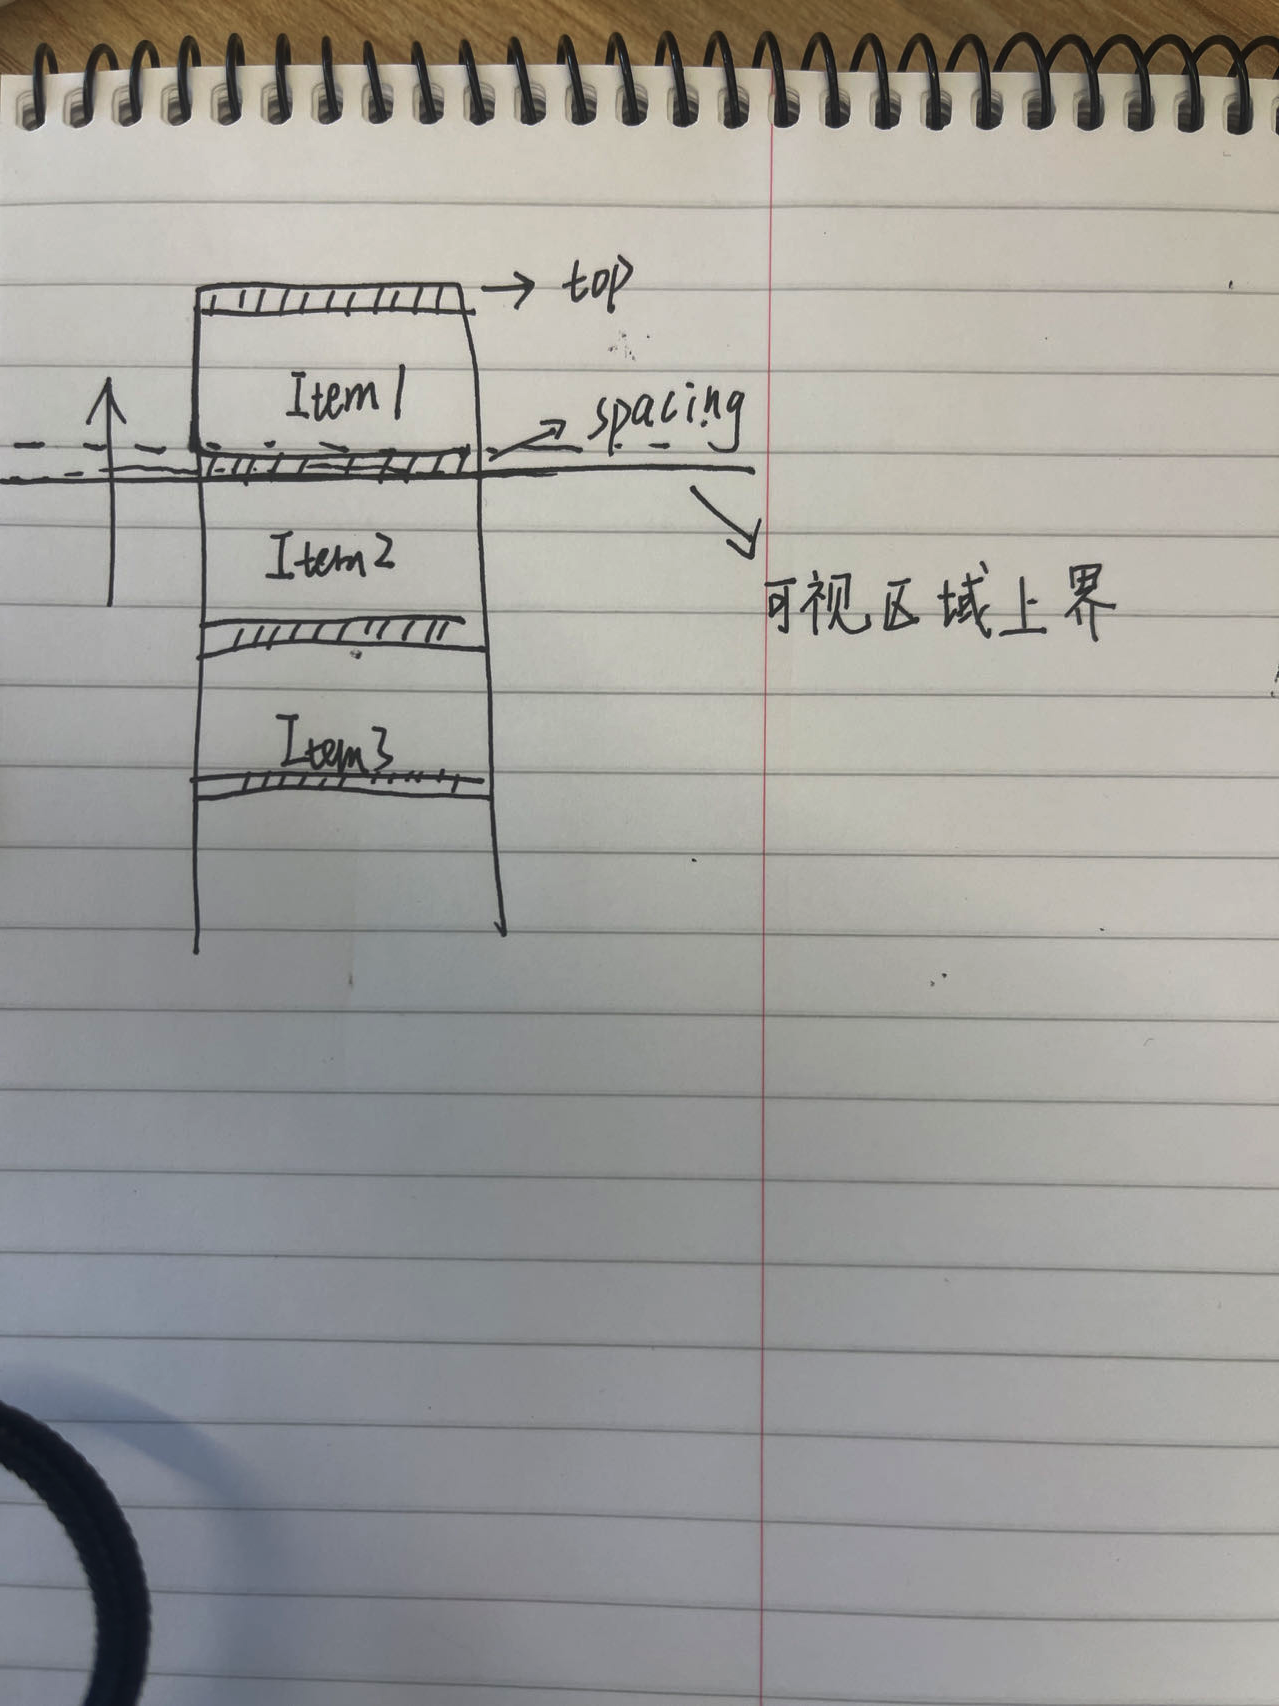 top
Item1
spacing
Item2
可视区域上界
Item3